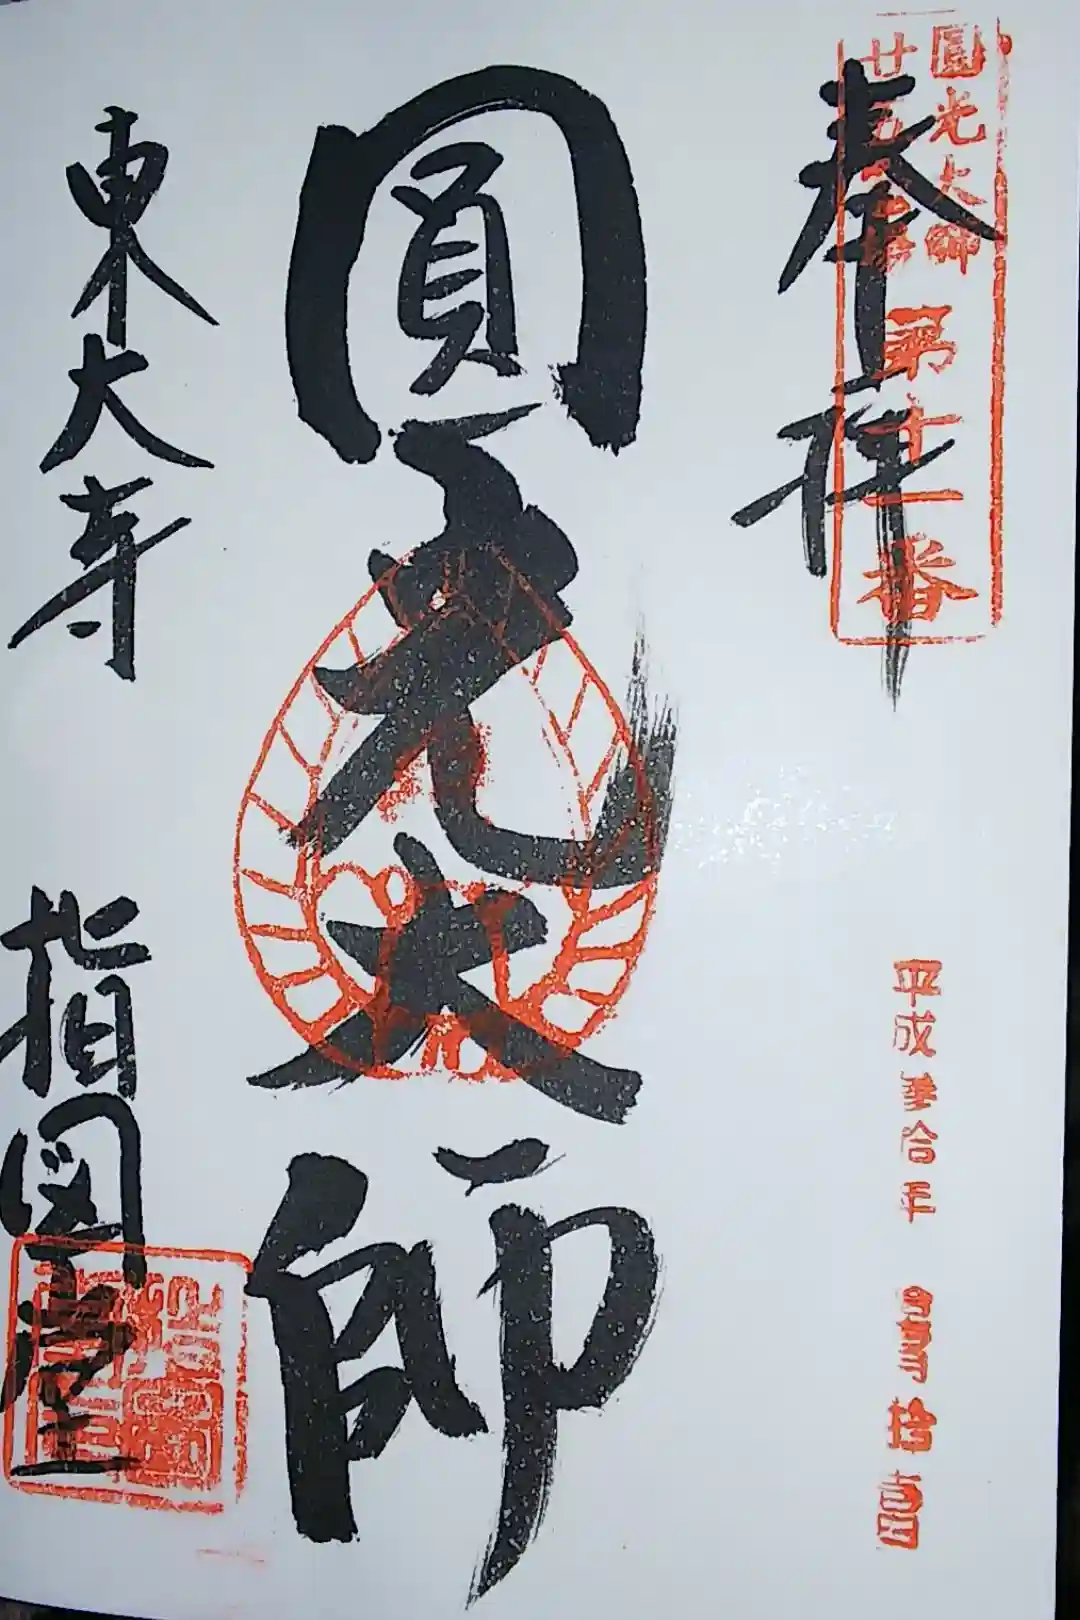 奉拝
圓光大師
廿五霊場
第十一番
平成参合年
圓光大師
東大寺
指図堂